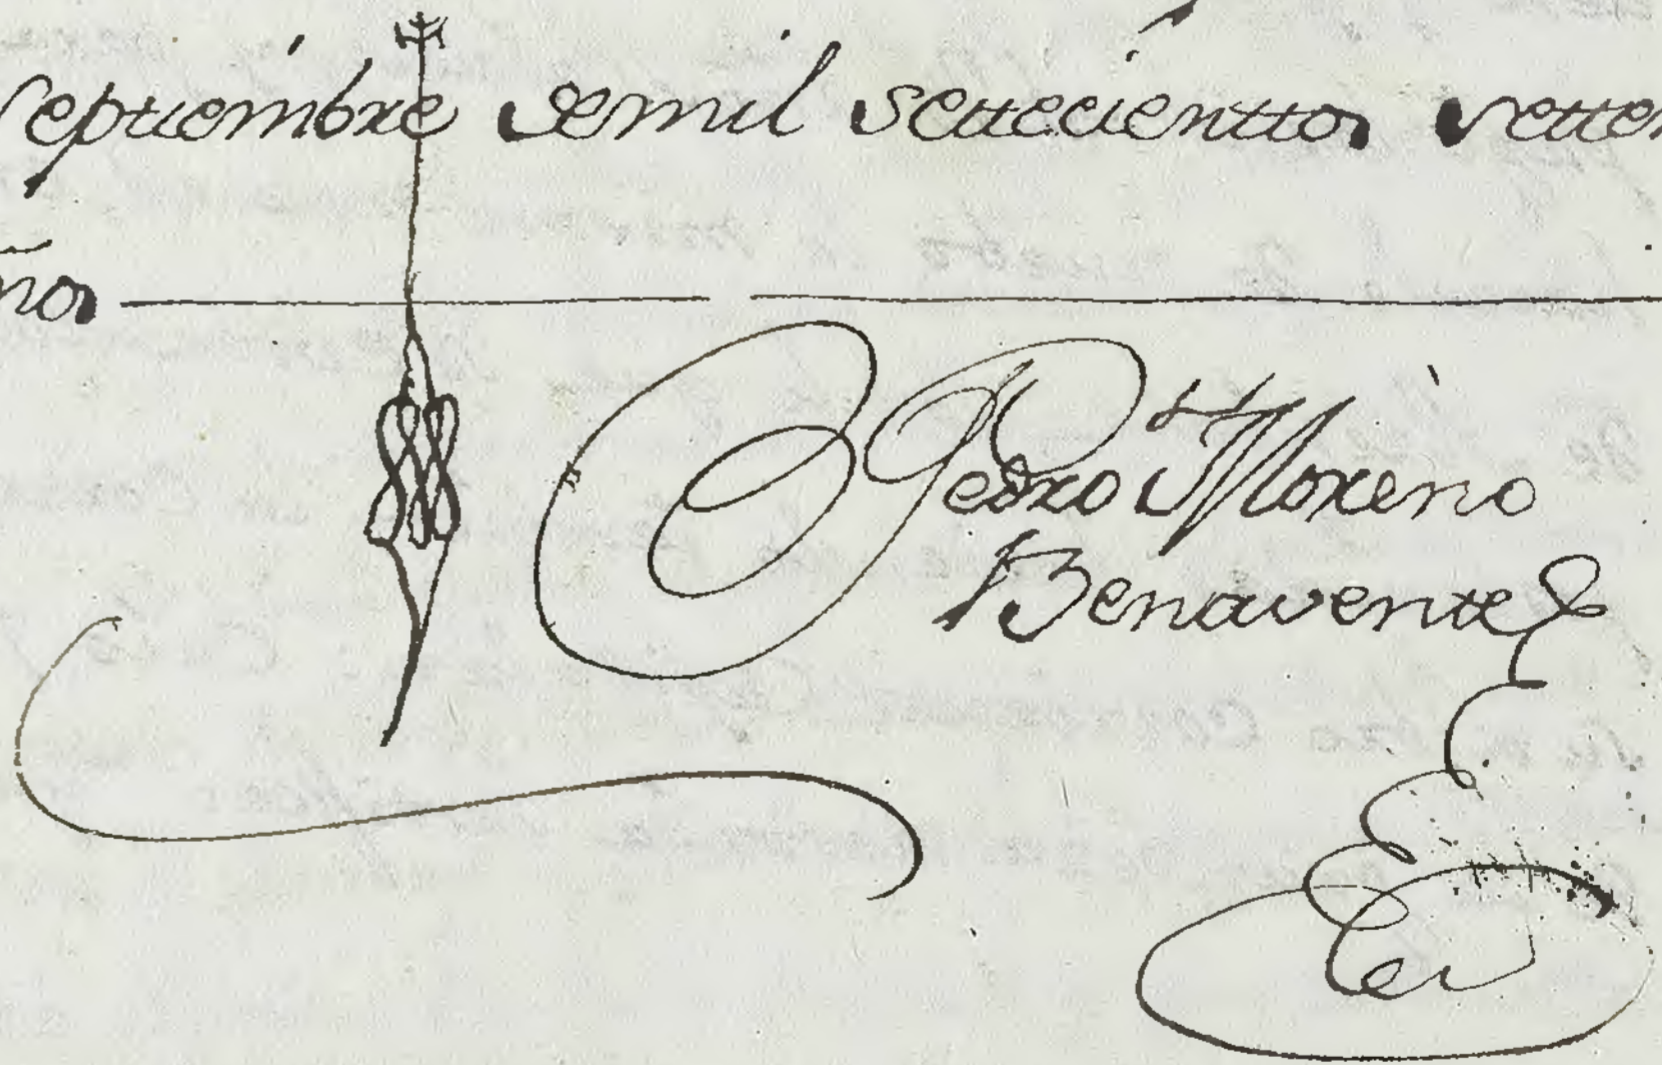 Septiembre demil settecienttos setten
ños
Pedro Moreno
Benavente